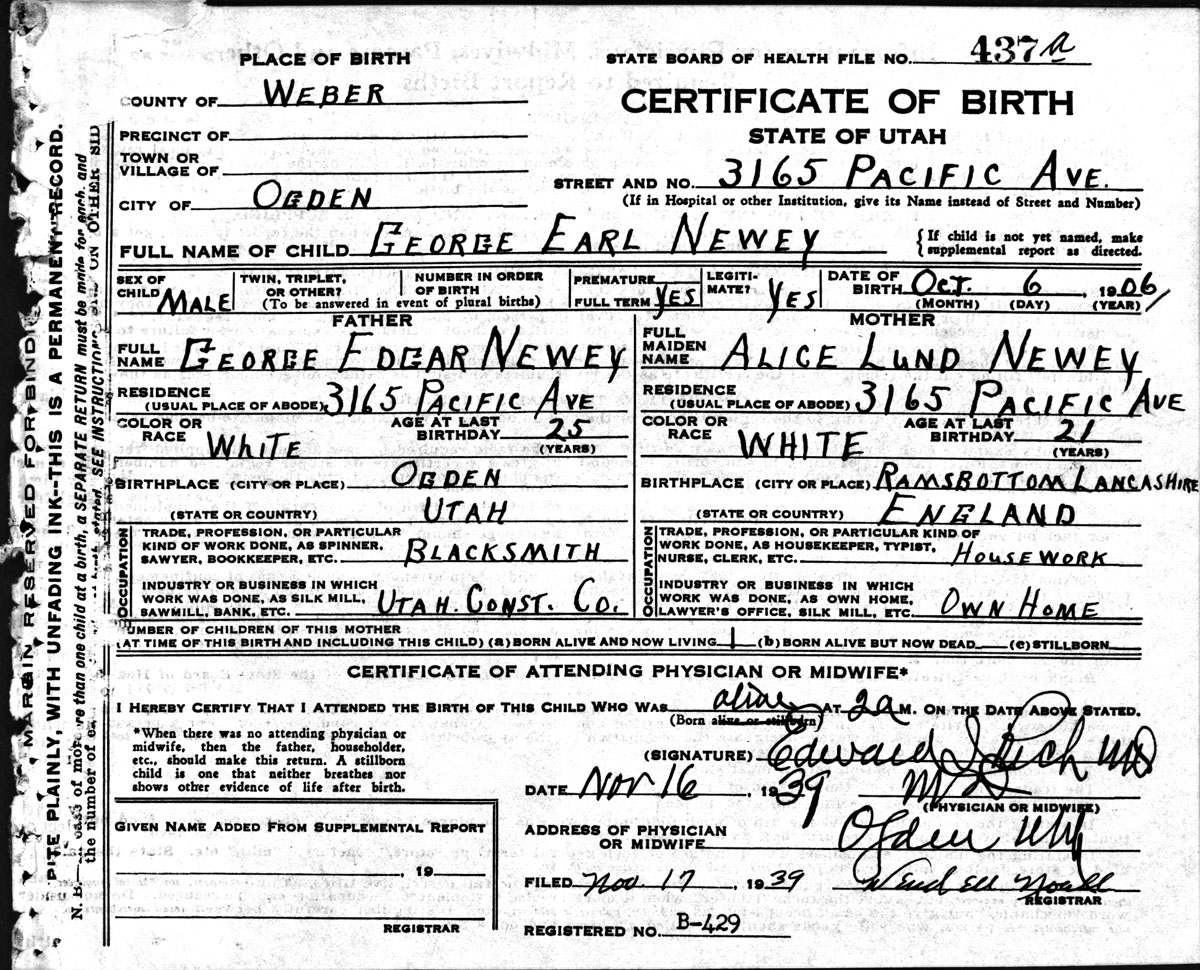 PLACE OF BIRTH
STATE BOARD OF HEALTH FILE NO. 437 a
COUNTY OF WEBER
CERTIFICATE OF BIRTH
PRECINCT OF
STATE OF UTAH
TOWN OR
VILLAGE OF
STREET AND NO. 3165 PACIFIC AVE.
CITY OF OGDEN
(If in Hospital or other Institution, give its Name instead of Street and Number)
FULL NAME OF CHILD GEORGE EARL NEWEY
{If child is not yet named, make
supplemental report as directed.
SEX OF
CHILD MALE
TWIN, TRIPLET,
OR OTHER?
NUMBER IN ORDER
OF BIRTH
(To be answered in event of plural births)
PREMATURE
FULL TERM YES
LEGITI-
MATE? YES
DATE OF
BIRTH OCT. 6, 1906
(MONTH) (DAY) (YEAR)
FATHER
FULL
NAME GEORGE EDGAR NEWEY
RESIDENCE
(USUAL PLACE OF ABODE) 3165 PACIFIC AVE
COLOR OR
RACE WHITE
AGE AT LAST
BIRTHDAY 25
(YEARS)
BIRTHPLACE (CITY OR PLACE) OGDEN
(STATE OR COUNTRY) UTAH
OCCUPATION
TRADE, PROFESSION, OR PARTICULAR
KIND OF WORK DONE, AS SPINNER,
SAWYER, BOOKKEEPER, ETC. BLACKSMITH
INDUSTRY OR BUSINESS IN WHICH
WORK WAS DONE, AS SILK MILL,
SAWMILL, BANK, ETC. UTAH. CONST. CO.
MOTHER
FULL
MAIDEN
NAME ALICE LUND NEWEY
RESIDENCE
(USUAL PLACE OF ABODE) 3165 PACIFIC AVE
COLOR OR
RACE WHITE
AGE AT LAST
BIRTHDAY 21
(YEARS)
BIRTHPLACE (CITY OR PLACE) RAMSBOTTOM LANCASHIRE
(STATE OR COUNTRY) ENGLAND
OCCUPATION
TRADE, PROFESSION, OR PARTICULAR KIND OF
WORK DONE, AS HOUSEKEEPER, TYPIST,
NURSE, CLERK, ETC. HOUSEWORK
INDUSTRY OR BUSINESS IN WHICH
WORK WAS DONE, AS OWN HOME,
LAWYER'S OFFICE, SILK MILL, ETC. OWN HOME
UMBER OF CHILDREN OF THIS MOTHER
(AT TIME OF THIS BIRTH AND INCLUDING THIS CHILD) (a) BORN ALIVE AND NOW LIVING 1 (b) BORN ALIVE BUT NOW DEAD (c) STILLBORN
CERTIFICATE OF ATTENDING PHYSICIAN OR MIDWIFE*
I HEREBY CERTIFY THAT I ATTENDED THE BIRTH OF THIS CHILD WHO WAS alive AT 2 a M. ON THE DATE ABOVE STATED.
(Born alive or stillborn)
*When there was no attending physician or
midwife, then the father, householder,
etc., should make this return. A stillborn
child is one that neither breathes nor
shows other evidence of life after birth.
(SIGNATURE) Edward I Rich MD
DATE Nov 16, 1939 MD
(PHYSICIAN OR MIDWIFE)
GIVEN NAME ADDED FROM SUPPLEMENTAL REPORT
, 19
REGISTRAR
ADDRESS OF PHYSICIAN
OR MIDWIFE Ogden
FILED Nov. 17, 1939
REGISTRAR
REGISTERED NO. B-429
MARGIN RESERVED FOR BINDI
PITE PLAINLY, WITH UNFADING INK--THIS IS A PERMANENT RECORD.
N. B.—
than one child at a birth, a SEPARATE RETURN must be made for each, and
the number of
SEE INSTRUCTIONS ON OTHER SID